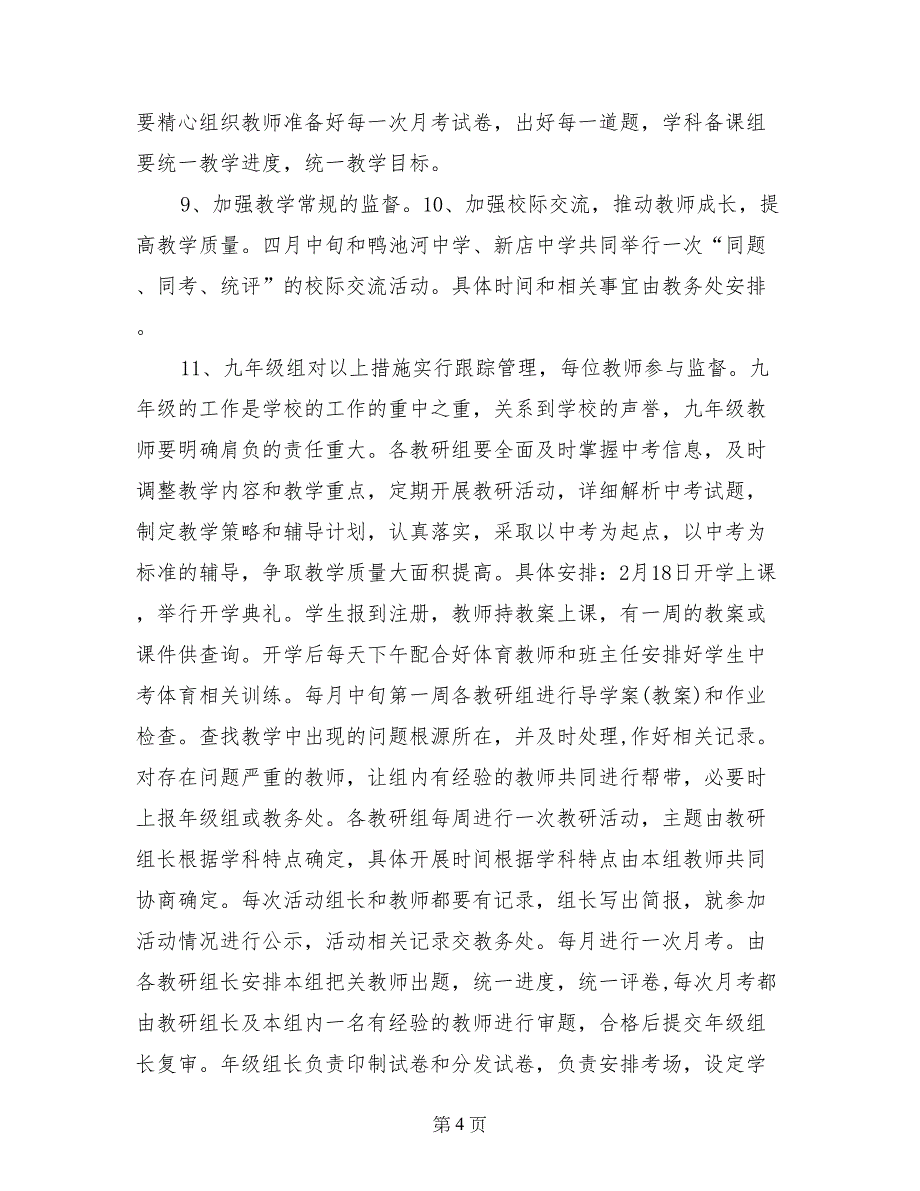 要精心组织教师准备好每一次月考试卷，出好每一道题，学科备课组
要统一教学进度，统一教学目标。
9、加强教学常规的监督。10、加强校际交流，推动教师成长，提
高教学质量。四月中旬和鸭池河中学、新店中学共同举行一次“同题
、同考、统评”的校际交流活动。具体时间和相关事宜由教务处安排
。
11、九年级组对以上措施实行跟踪管理，每位教师参与监督。九
年级的工作是学校的工作的重中之重，关系到学校的声誉，九年级教
师要明确肩负的责任重大。各教研组要全面及时掌握中考信息，及时
调整教学内容和教学重点，定期开展教研活动，详细解析中考试题，
制定教学策略和辅导计划，认真落实，采取以中考为起点，以中考为
标准的辅导，争取教学质量大面积提高。具体安排：2月18日开学上课
，举行开学典礼。学生报到注册，教师持教案上课，有一周的教案或
课件供查询。开学后每天下午配合好体育教师和班主任安排好学生中
考体育相关训练。每月中旬第一周各教研组进行导学案(教案)和作业
检查。查找教学中出现的问题根源所在，并及时处理,作好相关记录。
对存在问题严重的教师，让组内有经验的教师共同进行帮带，必要时
上报年级组或教务处。各教研组每周进行一次教研活动，主题由教研
组长根据学科特点确定，具体开展时间根据学科特点由本组教师共同
协商确定。每次活动组长和教师都要有记录，组长写出简报，就参加
活动情况进行公示，活动相关记录交教务处。每月进行一次月考。由
各教研组长安排本组把关教师出题，统一进度，统一评卷,每次月考都
由教研组长及本组内一名有经验的教师进行审题，合格后提交年级组
长复审。年级组长负责印制试卷和分发试卷，负责安排考场，设定学
第 4 页